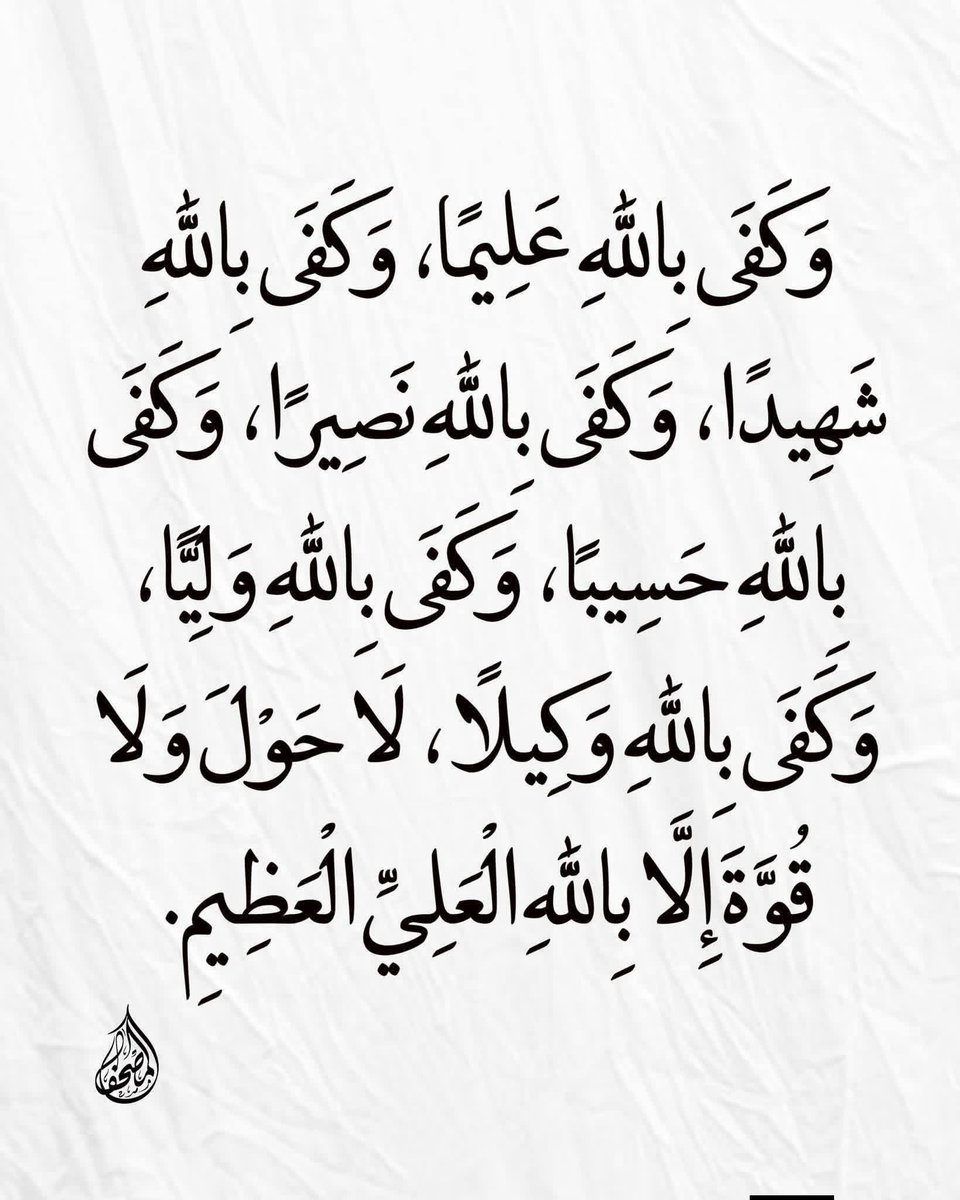 وَكَفَى بِاللهِ عَلِيمًا، وَكَفَى بِاللهِ
شَهِيدًا، وَكَفَى بِاللهِ نَصِيرًا، وَكَفَى
بِاللهِ حَسِيبًا، وَكَفَى بِاللهِ وَلِيًّا،
وَكَفَى بِاللهِ وَكِيلًا، لَا حَوْلَ وَلَا
قُوَّةَ إِلَّا بِاللهِ الْعَلِيِّ الْعَظِيمِ.